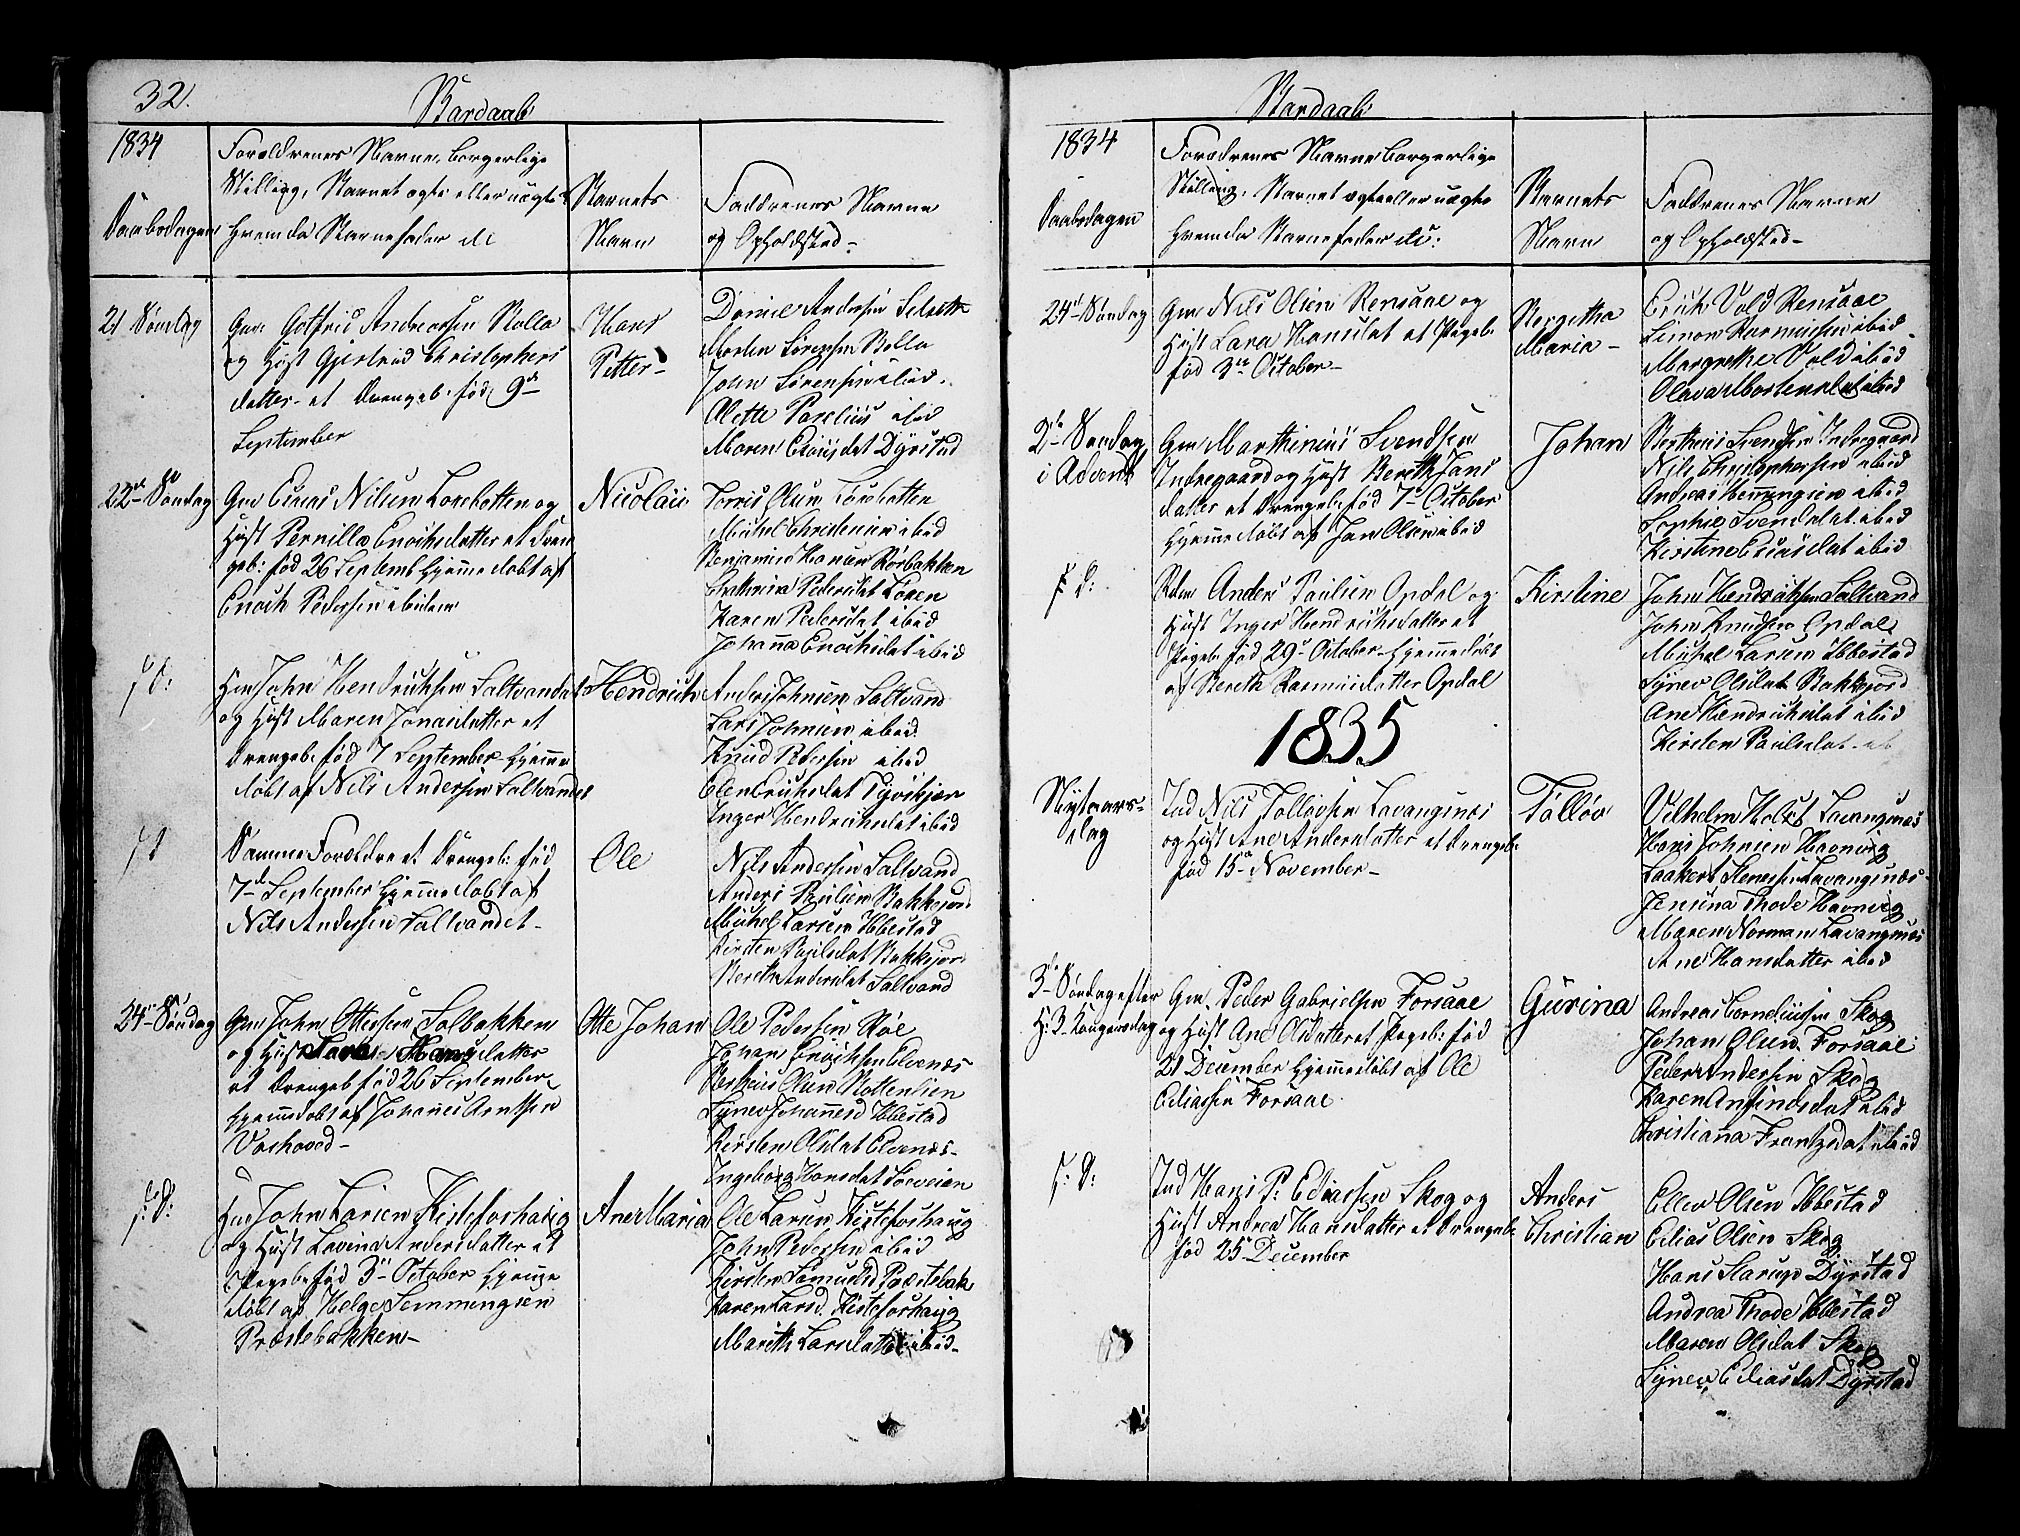 32.
Bardaab
1834
Forældrenes Navne, borgerlige
Stilling, Barnet ægte eller uægte
Hvem da Barnefader ec
Daabsdagen
Barnets
Navn
Faddrenes Navne
og Opholdsted-
21 Søndag
Gm: Gotfrid Andreassen Rolla
og Hust Gjertrud Christophers
datter et Drengeb: fød 9de
September
Hans
Petter-
Daniel Andersen
Morten Sørensen Rolla
John Sørensen ibid.
Olette ibid
Maren Esaiisdat Dyrstad
22de Søndag
Gm Esaias Nilsen Sørebotten og
Hust Pernilla Enochsdatter et Dren
geb: fød 26 Septemb Hjemmedøbt af
Enoch Pedersen ibidem
Nicolaii
Olsen Sørebotten
Mikel Christensen ibid
Benjamin Hansen Rørbakken
Pedersdat
Karen Pedersdat ibid
Johanna Enochsdat ibid
s: D:
Hm John Hendrichsen Saltvandet
og Hust Maren Jonasdatter et
Drengeb: fød 7 September Hjemme
døbt af Nils Andersen Saltvandet
Hendrich
Anders Johnsen Saltvand
Lars Johnsen ibid.
Knud Pedersen ibid
Elen Erichsdat
Inger Hendrichsdat ibid
s D
Samme Forældre et Drengeb: fød
7de September Hjemmedøbt af
Nils Andersen Saltvandet-
Ole
Nils Andersen Saltvand
Anders Paulsen Bakkejord
Michel Larsen Ibbestad
Kirsten Paulsdat Bakkejor
Bereth Andersdat Saltvand
24de Søndag
Gm John Ottesen Solbakken
og Hust Hansdatter
et Drengeb fød 26 September
Hjemmedøbt af Johannes Arntsen
Vashoved-
Otte Johan
Ole Pedersen
Johan Enochsen Elvenæs
Olsen
Synev Johannesd Ibbestad
Kirsten Olsdat Elvenæs-
Ingeborg Hansdat
s: D:
Hm John Larsen Kisteforhaug
og Hust Lavina Andersdatter et
Pigeb: fød 3de October Hjemme
døbt af Helge Semmingsen
Præstebakken-
Ane Maria
Ole Larsen Kisteforhaug
John Pedersen ibid
Kirsten Samuelsd Præstebak
Karen Larsd. Kisteforhaug
Mareth Larsdatter ibid-
Bardaab
1834
Daabsdagen
Forældrenes Navne borgerlige
Stilling, Barnet ægte eller uægte
Hvem da Barnefader etc:
Barnets
Navn
Faddrenes Navne
og Opholdsted-
24de Søndag
Gm Nils Olsen Rensaae og
Hust Lava Hansdat et Pigeb:
fød 3de October-
Bergetha
Maria-
Erich Vold Rensaae
Simon Rasmussen ibid
Margrethe Vold ibid
Olava Mortensdat ibid
2de Søndag
i Advent
Gm Marthinus Svendsen
Indregaard og Hust Bereth Jans
datter et Drengeb: fød 7de October
Hjemmedøbt af Jan Olsen ibid
Johan
Bertheus Svendsen Indregaard
Nils Christophersen ibid
Andreas Hemmingsen ibid
Sophie Svendsdat ibid
Kirstine Esaisdat ibid
s D:
Anders Paulsen Opdal og
Hust Inger Hendrichsdatter et
Pigeb: fød 29de October Hjemmedøbt
af Bereth Rasmusdatter Opdal
Kirstine
John Hendrichsen Saltvand
John Knudsen Opdal
Michel Larsen Ibbestad
Synev Olsdat Bakkejord
Ane Hendrichsdat ibid
Kirsten Paulsdat
1835
Nytaars-
dag
Ind Nils Tolløvsen Lavangsnæs
og Hust Ane Andersdatter et Drengeb
fød 15de November-
Tølløv
Vilhelm Holst Lavangsnæs
Hans Johnsen Havnvig
Lavangsnæs-
Jensina Thode Havnvig
Maren Norman Lavangsnæs
Ane Hansdatter ibid
3de Søndag efter
H: 3 Kongersdag
Gm. Peder Gabrielsen Forsaae
og Hust Ane Olsdatter et Pigeb: fød
21 December Hjemmedøbt af Ole
Eliassen Forsaae
Gurina
Andreas Corneliussen Skog
Johan Olsen Forsaae
Peder Andersen Skog
Karen Arfindsdat ibid
Christianna Frantzdat ibid
s: D:
Ind Hans P: Eliassen Skog og
Hust Andrea Hansdatter et Drengeb:
fød 25de December
Anders
Christian
Eller Olsen Ibbestad
Elias Olsen Skog
Hans Starup Dyrstad
Andrea Thode Ibbestad
Maren Olsdat Skog
Synev Eliasdat Dyrstad